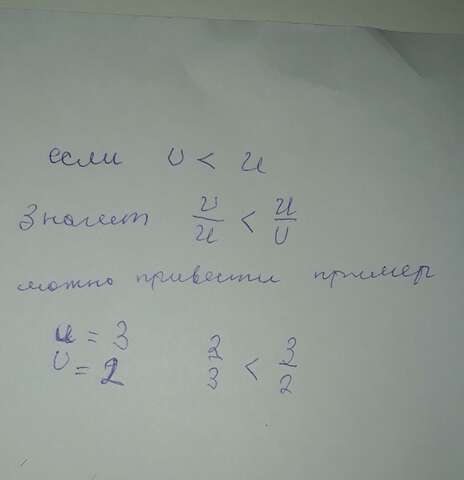 если υ < u
Значит υ/u < u/υ
можно привести пример
u = 3
υ = 2
2/3 < 3/2